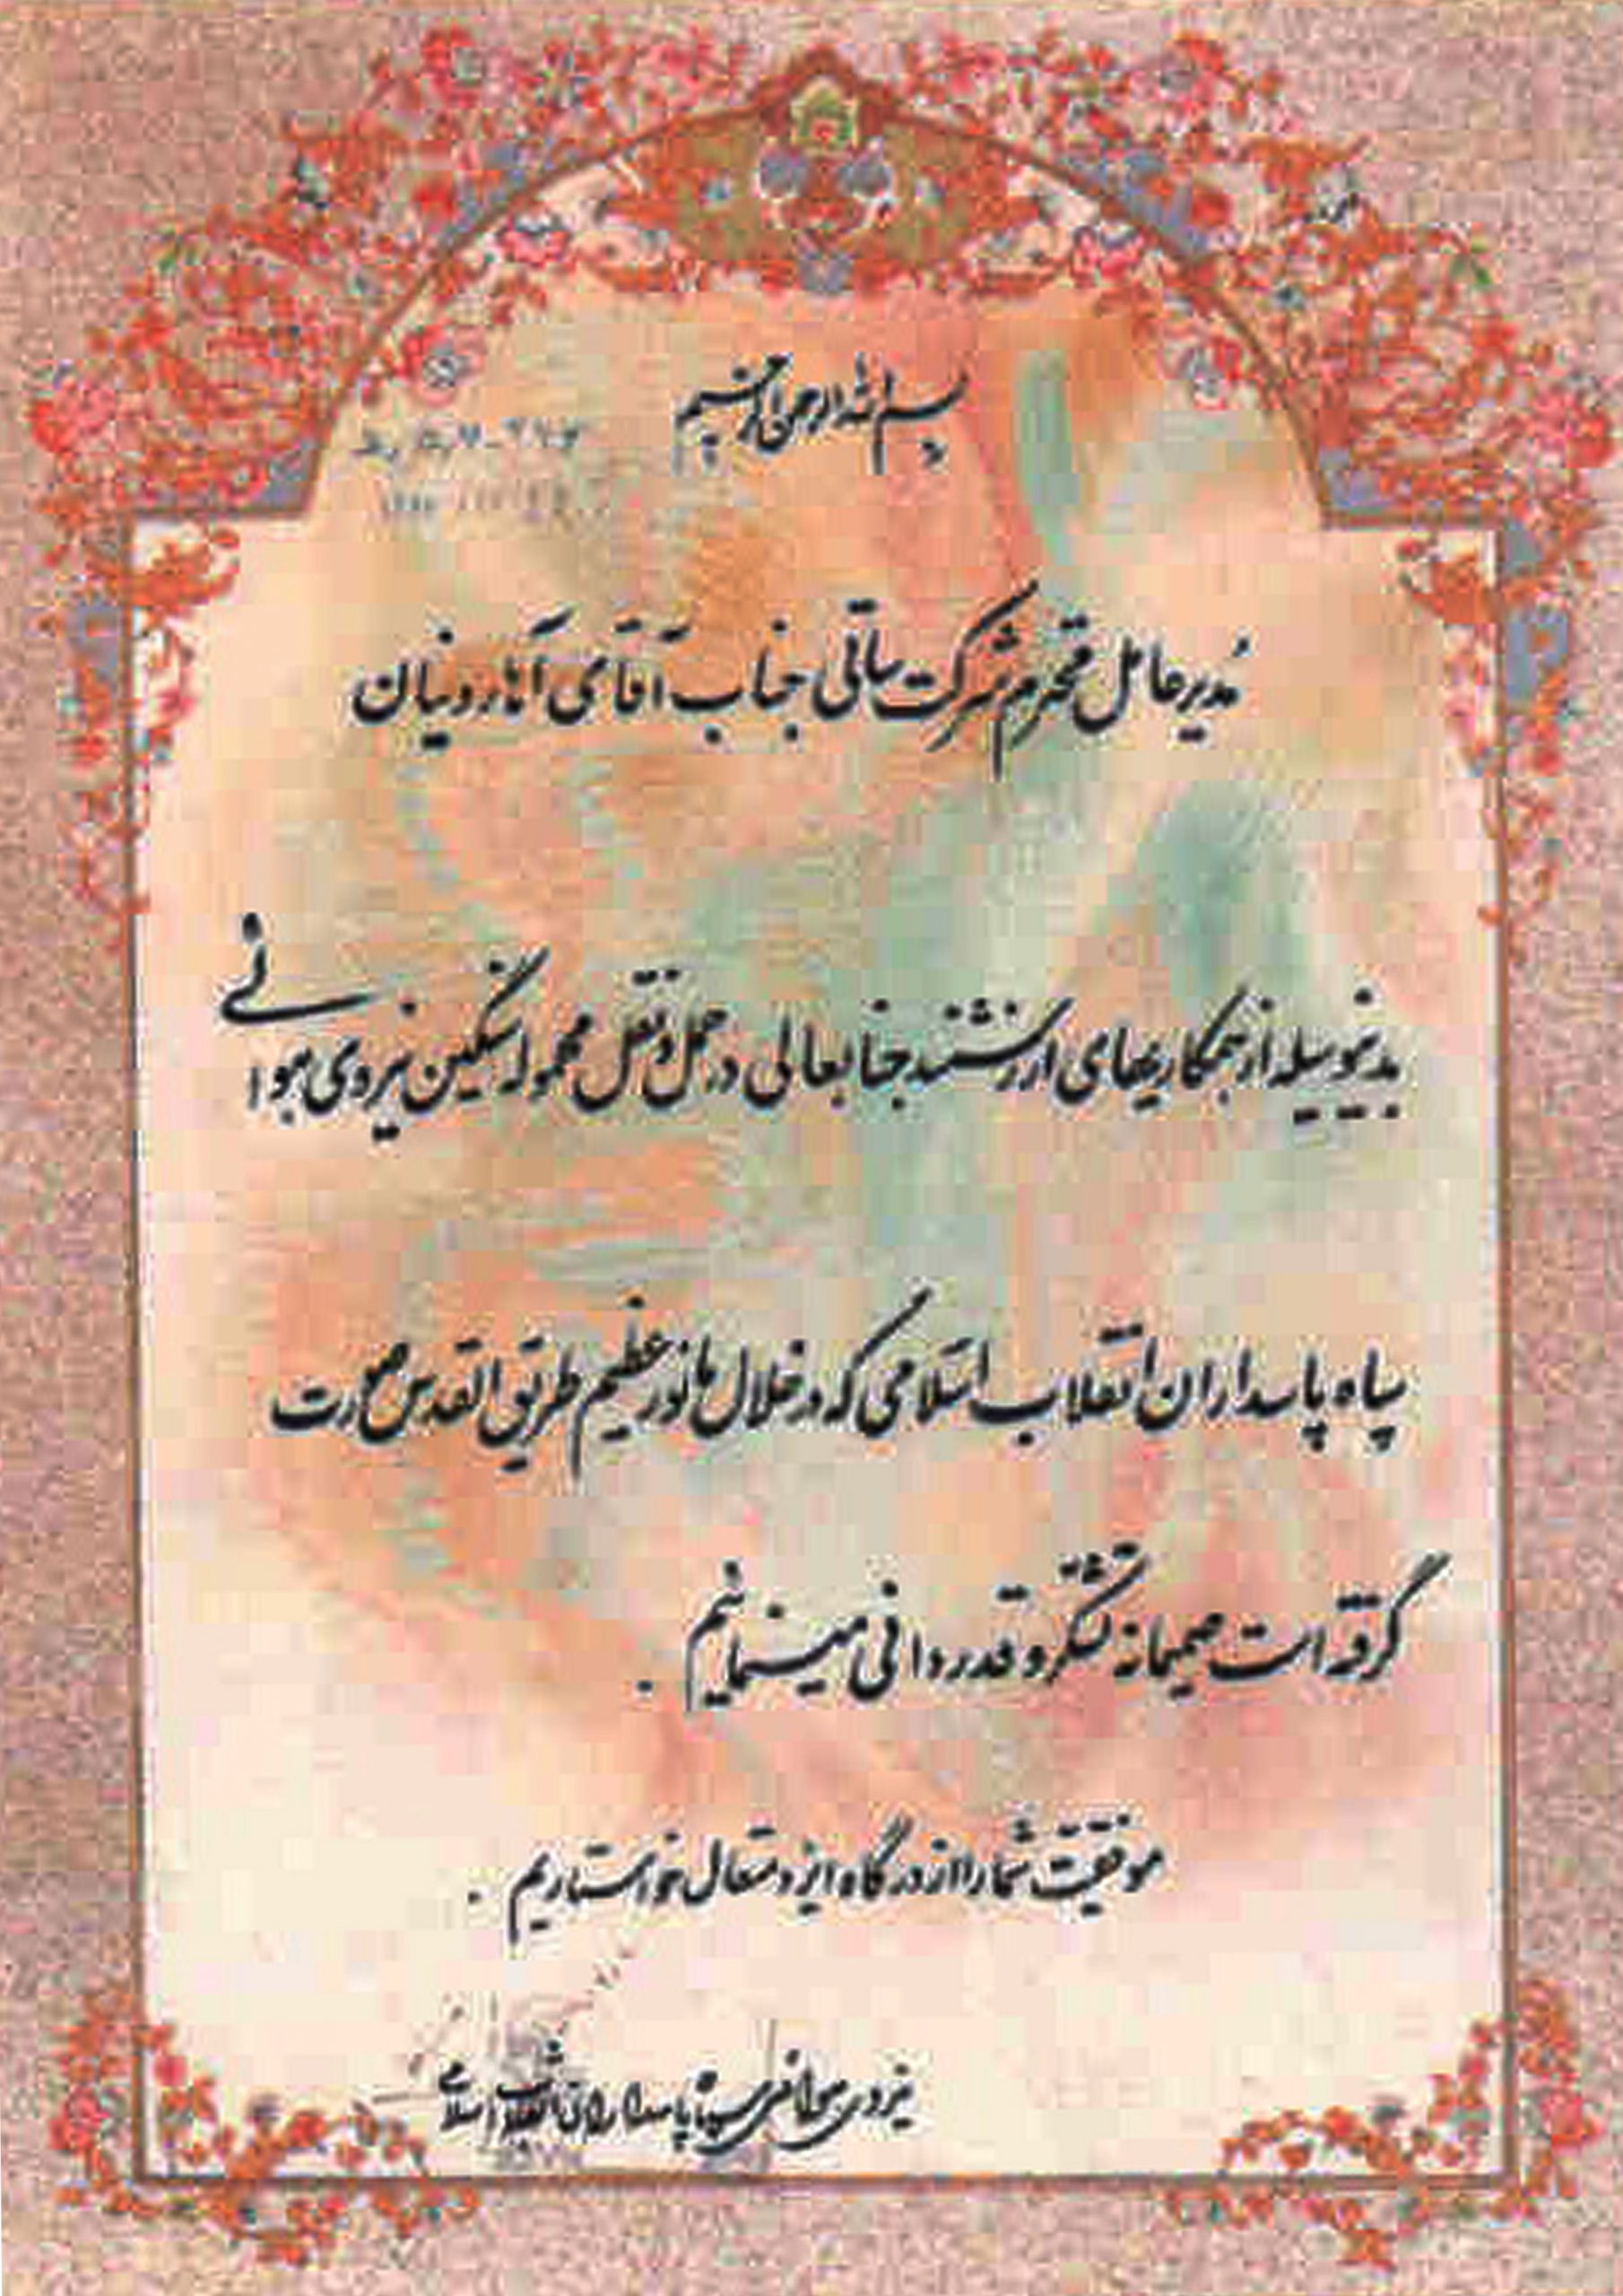 بسم الله الرحمن الرحیم
مدیر عامل محترم شرکت ساتی جناب آقای آهارونیان
بدینوسیله از همکاریهای ارزشمند جنابعالی در حمل و نقل محموله سنگین نیروی هوائی
سپاه پاسداران انقلاب اسلامی که در خلال مانور عظیم طریق القدس صورت
گرفته است صمیمانه تشکر و قدردانی مینمائیم .
موفقیت شما را از درگاه ایزد متعال خواستاریم .
نیروی هوائی سپاه پاسداران انقلاب اسلامی